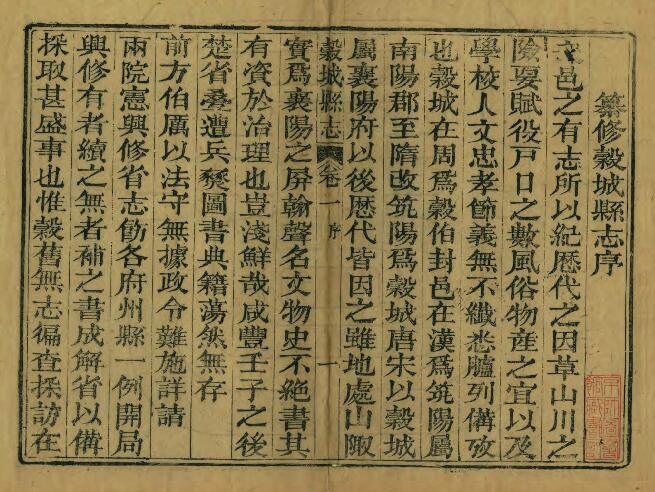 纂修糓城縣志序
邑之有志所以紀歴代之因革山川之
險要賦役戸口之數風俗物産之宜以及
學校人文忠孝節義無不纎悉臚列備攷
也糓城在周爲糓伯封邑在漢爲筑陽屬
南陽郡至隋改筑陽爲糓城唐宋以糓城
屬襄陽府以後歴代皆因之雖地處山陬
糓城縣志 卷一 序 一
實爲襄陽之屏翰聲名文物史不絶書其
有資於治理也豈淺鮮哉咸豐壬子之後
楚省叠遭兵燹圖書典籍蕩然無存
前方伯厲以法守無據政令難施詳請
兩院憲興修省志飭各府州縣一例開局
興修有者續之無者補之書成解省以備
採取甚盛事也惟糓舊無志徧查採訪在